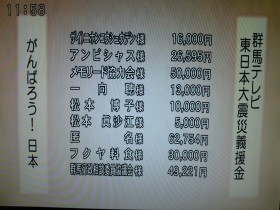 11:58
群馬テレビ
東日本大震災義援金
様 16,000円
アンビシャス様 26,595円
メモリード協力会様 50,000円
一向 聴様 13,000円
松本 博子様 10,000円
松本 眞沙江様 5,000円
匿名様 62,754円
フクヤ料食様 30,000円
様 49,221円
がんばろう！日本